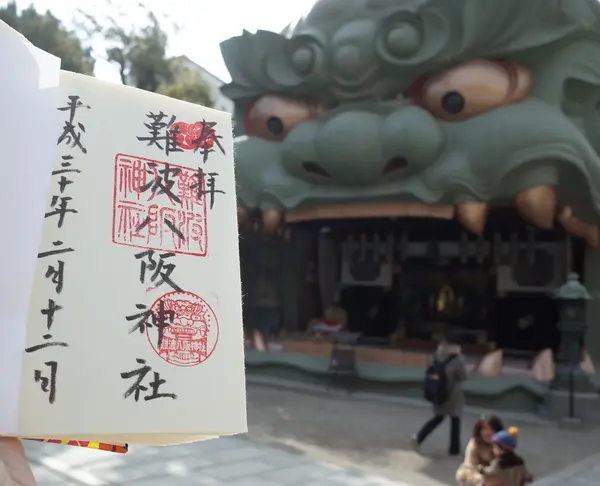 奉拝
難波八阪神社
平成三十年二月十二日
難波
神社
難波八阪神社